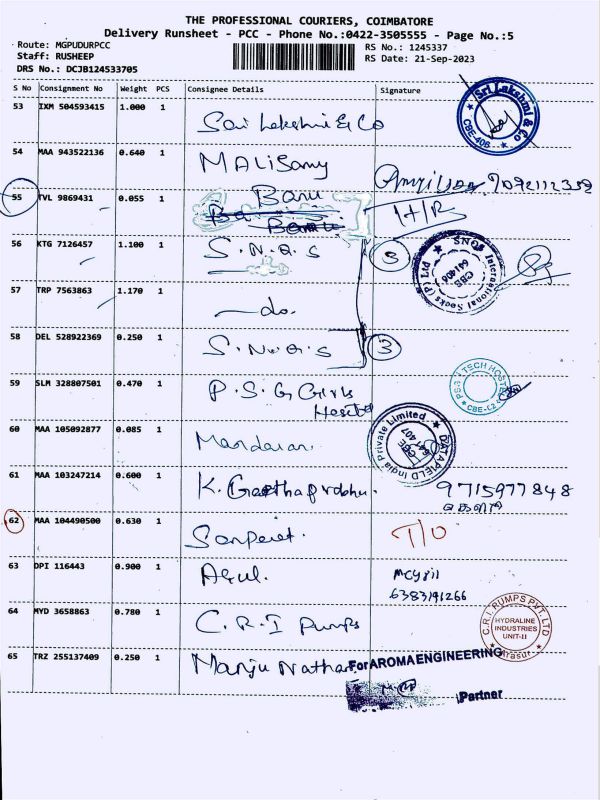 THE PROFESSIONAL COURIERS, COIMBATORE
Delivery Runsheet - PCC - Phone No.:0422-3505555 - Page No.:5
Route: MGPUDURPCC
RS No.: 1245337
Staff: RUSHEEP
RS Date: 21-Sep-2023
DRS No.: DCJB124533705
S No Consignment No Weight PCS Consignee Details Signature
53 IXM 504593415 1.000 1
Sri Lakshmi & Co
CBE-406
54 MAA 943522136 0.640 1
MALiSamy
55 TVL 9869431 0.055 1
Banu
56 KTG 7126457 1.100 1
S.N.Q.S
5
SNQS International Socks (P) Ltd
CBE
641406
57 TRP 7563863 1.170 1
do.
58 DEL 528922369 0.250 1
S.N.Q.S
3
59 SLM 328807501 0.470 1
P.S.G Girls
60 MAA 105092877 0.085 1
DATAFIELD India Private Limited
CBE
641 407
61 MAA 103247214 0.600 1
K. Geethaprabhu.
9715977848
62 MAA 104490500 0.630 1
T/O
63 DPI 116443 0.900 1
6383191266
64 MYD 3658863 0.780 1
C.R.I Pumps
C.R.I. PUMPS PVT. LTD
HYDRALINE
INDUSTRIES
UNIT-II
Arasur
65 TRZ 255137409 0.250 1
Manju Nathan
For AROMA ENGINEERING
Partner